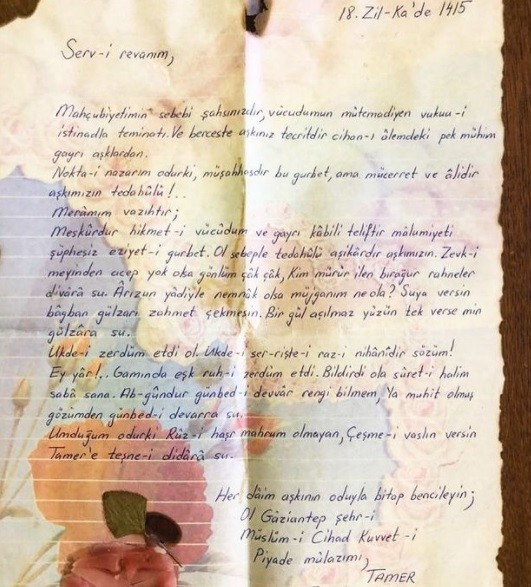 18. Zil-Ka'de 1415
Serv-i revanım,
Mahçubiyetimin sebebi şahsınızdır, vücudumun mütemadiyen vukuu-i
istinadla teminatı. Ve berceste aşkınız tecritdir cihan-ı âlemdeki pek mühim
gayrı aşklardan.
Nokta-i nazarım odurki, müşahhasdır bu gurbet, ama mücerret ve âlidir
aşkımızın tedahülü!..
Merâmım vazıhtır;
Meşkûrdur hikmet-i vücûdum ve gayrı kâbili teliftir malumiyeti
şüphesiz eziyet-i gurbet. Ol sebeple tedahülü aşikârdır aşkımızın. Zevk-i
meyinden acep yok olsa gönlüm çâk çâk, Kim mürûr ilen bırağur rahneler
divâra su. Ârizun yâdiyle nemnâk olsa müjganım ne ola? Suya versin
bâğban gülzarı zahmet çekmesin. Bir gül açılmaz yüzün tek verse min
gülzâra su.
Ukde-i zerdüm etdi ol. Ukde-i ser-rişte-i raz-i nihânîdir sözüm!
Ey yâr!.. Gamında eşk ruh-i zerdüm etdi. Bildirdi ola sûret-i halim
sabâ sana. Ab-gûndur günbed-i devvâr rengi bilmem, Ya muhit olmuş
gözümden günbed-i devarra su.
Umduğum odurki Rûz-i haşr mahrum olmayan, Çeşme-i vaslın versin
Tamer'e teşne-i didârâ su.
Her dâim aşkının oduyla bitap bencileyin;
Ol Gâziantep şehr-i
Müslüm-i Cihad Kuvvet-i
Piyade mülazımı,
TAMER